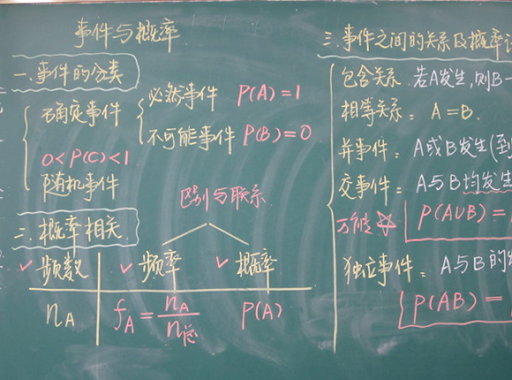 事件与概率
一.事件的分类
确定事件
必然事件 P(A)=1
不可能事件 P(B)=0
0<P(C)<1
随机事件
二.概率相关
区别与联系
频数 频率 概率
nA fA=nA/n总 P(A)
三.事件之间的关系及概率
包含关系.若A发生,则B一
相等关系:A=B.
并事件:A或B发生(至
交事件:A与B均发生
万能 P(A∪B)=
独立事件:A与B的
P(AB)=